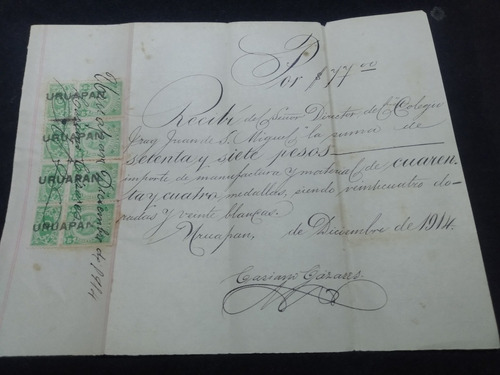 Por $77.00
Recibí del Señor Director del "Colegio
Fray Juan de S. Miguel" la suma de
setenta y siete pesos
importe de manufactura y material de cuaren
ta y cuatro medallas, siendo veinticuatro do
radas y veinte blancas.
Uruapan, de Diciembre de 1914.
URUAPAN
URUAPAN
URUAPAN
URUAPAN
Uruapan Diciembre de 1914